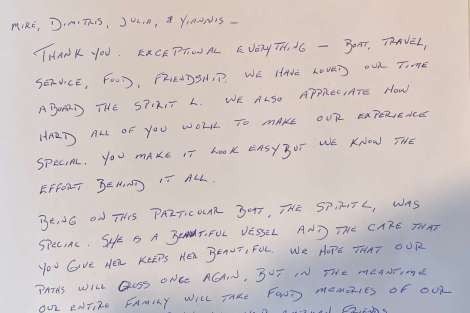 MIKE, DIMITRIS, JULIA, & YIANNIS –
THANK YOU. EXCEPTIONAL EVERYTHING – BOAT, TRAVEL,
SERVICE, FOOD, FRIENDSHIP. WE HAVE LOVED OUR TIME
ABOARD THE SPIRIT L. WE ALSO APPRECIATE HOW
HARD ALL OF YOU WORK TO MAKE OUR EXPERIENCE
SPECIAL. YOU MAKE IT LOOK EASY BUT WE KNOW THE
EFFORT BEHIND IT ALL.
BEING ON THIS PARTICULAR BOAT, THE SPIRIT L, WAS
SPECIAL. SHE IS A BEAUTIFUL VESSEL AND THE CARE THAT
YOU GIVE HER KEEPS HER BEAUTIFUL. WE HOPE THAT OUR
PATHS WILL CROSS ONCE AGAIN, BUT IN THE MEANTIME
OUR ENTIRE FAMILY WILL TAKE FOND MEMORIES OF OUR
FRIENDS